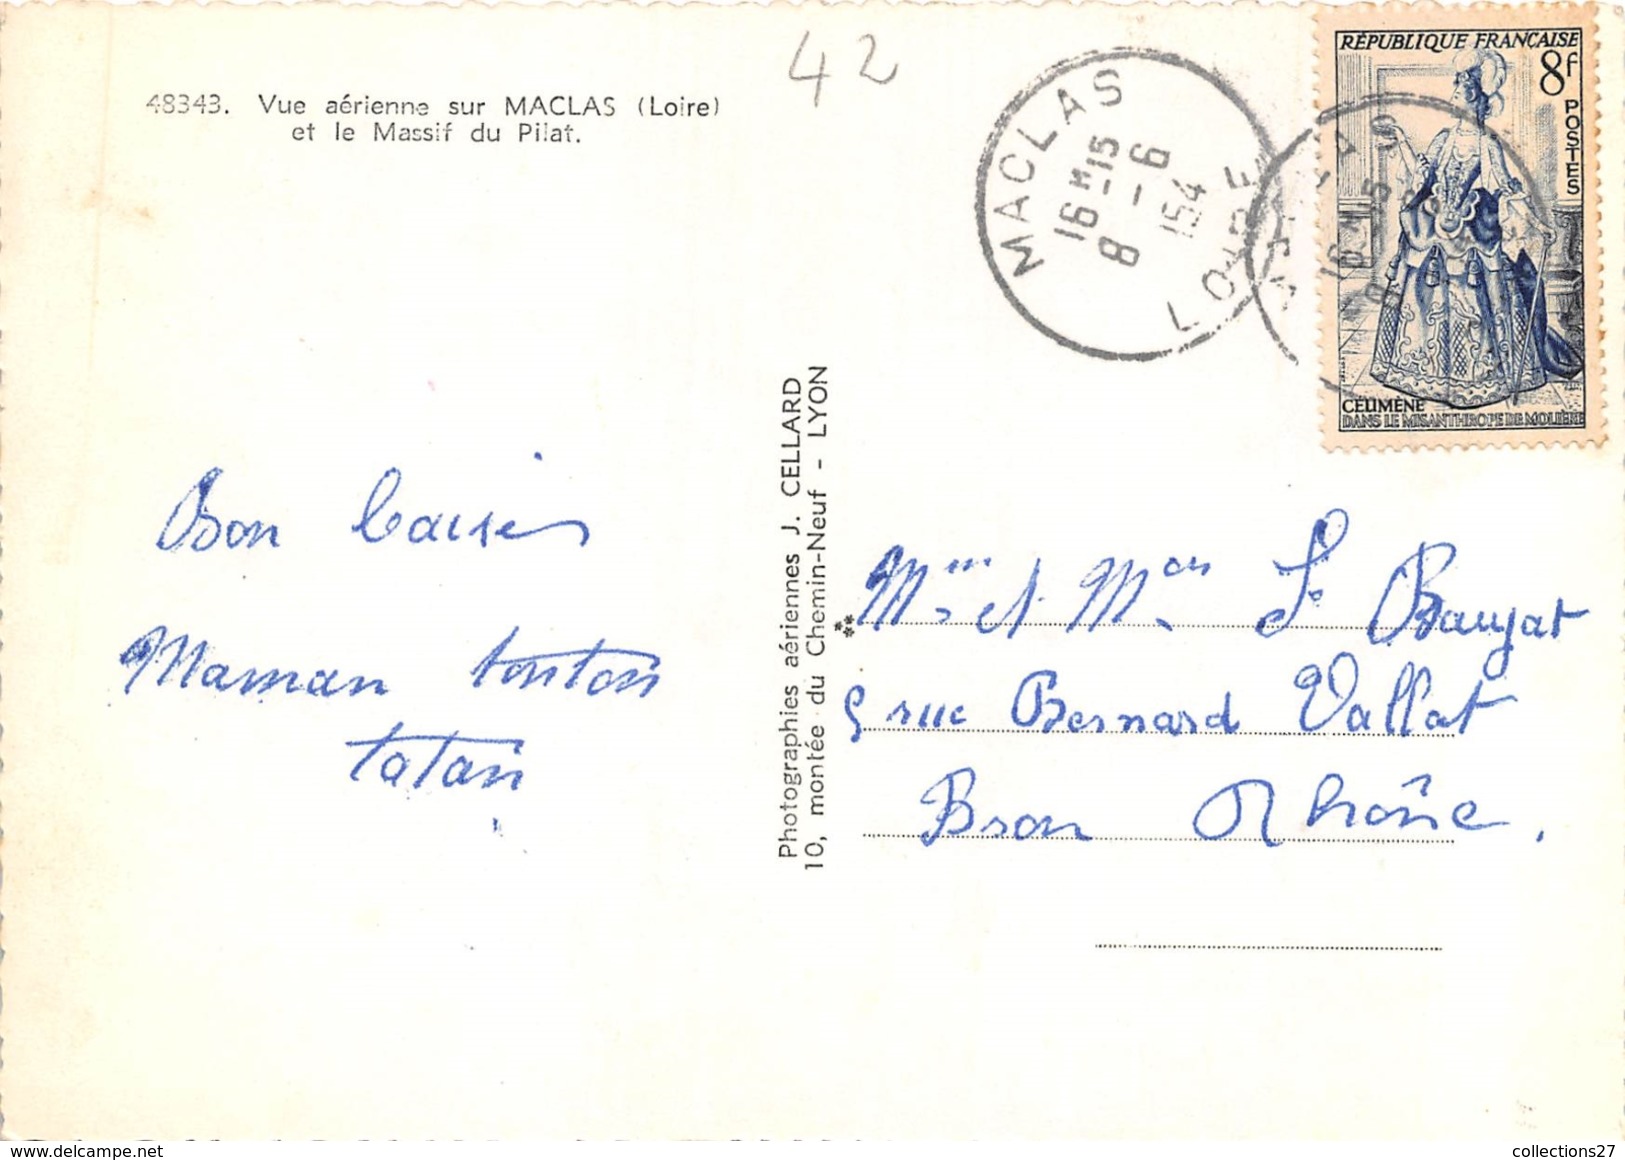 42
48343. Vue aérienne sur MACLAS (Loire)
et le Massif du Pilat.
MACLAS
16 H 15
8 - 6
154
LOIRE
RÉPUBLIQUE FRANÇAISE
8f
POSTES
CÉLIMÈNE
DANS LE MISANTHROPE DE MOLIÈRE
Bon baiser
Maman tonton
tatan
Photographies aériennes J. CELLARD
10, montée du Chemin-Neuf - LYON
Mme et Mer Baujat
5 rue Bernard Vallat
Bron Rhône.
collections27